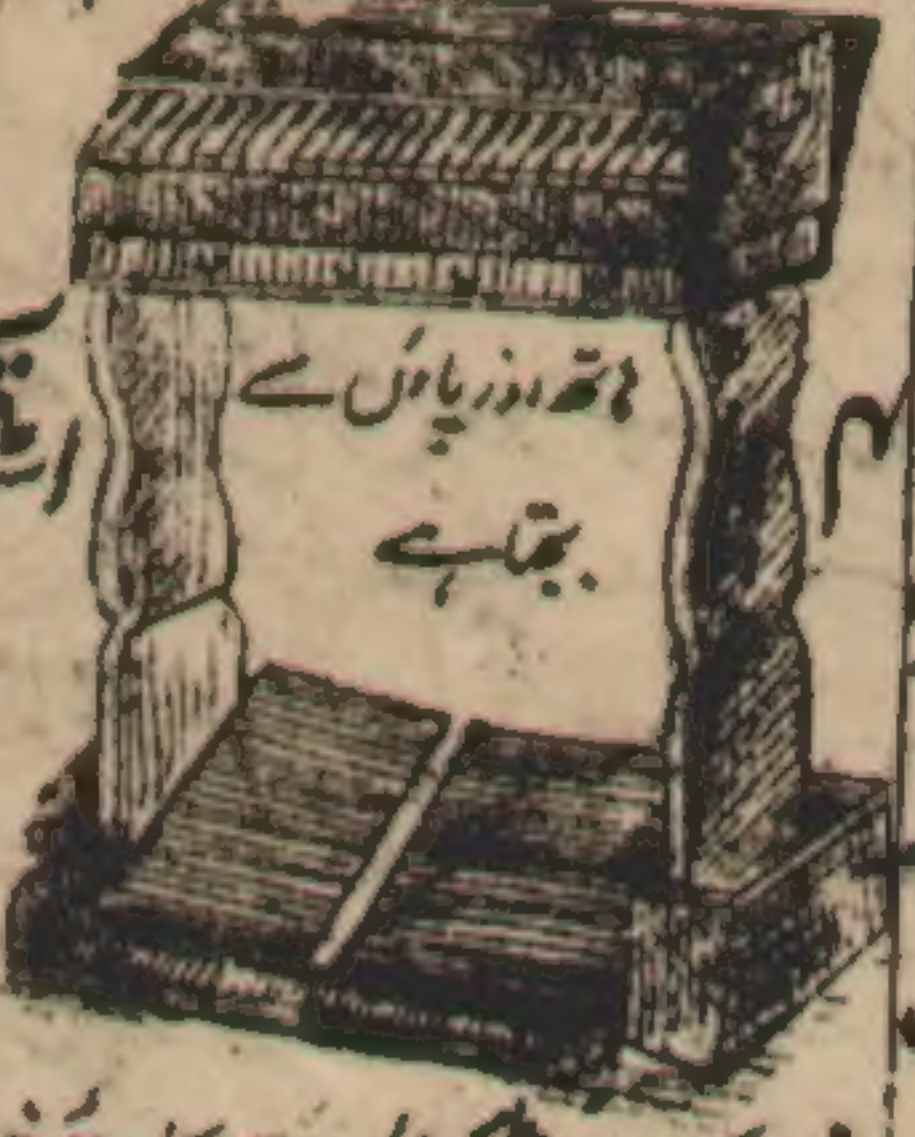 ہاتھ اور پاوں سے
بجتا ہے